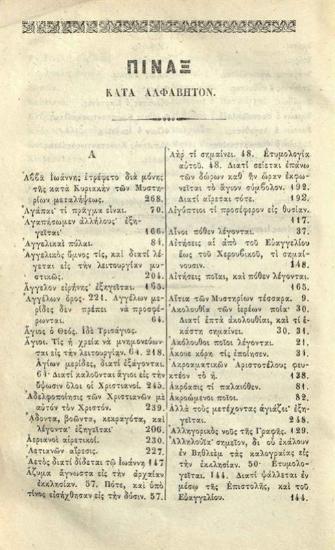 ΠΙΝΑΞ
ΚΑΤΑ ΑΛΦΑΒΗΤΟΝ.
Α
Ἀββᾶ Ἰωάννης ἐτρέφετο διὰ μόνης
τῆς κατὰ Κυριακὴν τῶν Μυστη-
ρίων μεταλήψεως. 268.
Ἀγάπαι τί πρᾶγμα εἶναι. 70.
Ἀγαπήσωμεν ἀλλήλους ἐξη-
γεῖται 166.
Ἀγγελικαὶ πύλαι. 84.
Ἀγγελικὸς ὕμνος τίς, καὶ διατί λέ-
γεται εἰς τὴν λειτουργίαν πρι-
στικῶς. 204.
Ἄγγελον εἰρήνης ἐξηγεῖται. 165.
Ἀγγέλων ὄρος. 221. Ἀγγέλων με-
ρίδες δὲν πρέπει νὰ προσφέ-
ρωνται. 64.
Ἅγιος ὁ Θεός. Ἰδὲ Τρισάγιος.
Ἅγιοι. Τίς ἡ χρεία νὰ μνημονεύων-
ται εἰς τὴν λειτουργίαν. 64. 218.
Ἁγίων μερίδες, διατί ἐξάγονται.
64. Διατί καλοῦνται ἅγιοι εἰς τὴν
ὕψωσιν ὅλοι οἱ Χριστιανοί. 245.
Ἀδελφοποίησις τῶν Χριστιανῶν μὲ
αὐτὸν τὸν Χριστόν. 239.
ᾌδοντα, βοῶντα, κεκραγότα, καὶ
λέγοντα ἐξηγεῖται. 206.
Ἀεριανοὶ αἱρετικοί. 230.
Ἀετιανῶν αἵρεσις. 227.
Ἀετὸς διατί δίδεται τῷ Ἰωάννῃ 147
Ἄζυμα ἄγνωστα εἰς τὴν ἀρχαίαν
ἐκκλησίαν. 57. Πότε, καὶ ὑπὸ
τίνος εἰσήχθησαν εἰς τὴν δύσιν. 57.
Ἀὴρ τί σημαίνει. 48. Ἐτυμολογία
αὐτοῦ. 48. Διατί σείεται ἐπάνω
τῶν δώρων καθ' ἣν ὥραν ἐκφω-
νεῖται τὸ ἅγιον σύμβολον. 192.
Διατί αἴρεται τότε. 192.
Αἰγύπτιοι τί προσέφερον εἰς θυσίαν.
117.
Αἶνοι πόθεν λέγονται. 37.
Αἰτήσεις αἱ ἀπὸ τοῦ Εὐαγγελίου
ἕως τοῦ Χερουβικοῦ, τί σημαί-
νουσιν. 148.
Αἰτήσεις ποῖαι, καὶ πόθεν λέγονται.
165.
Αἴτια τῶν Μυστηρίων τέσσαρα. 9.
Ἀκολουθία τῶν ἱερέων ποία 30.
Διατί ἑπτὰ ἀκολουθίαι, καὶ τί ἑ-
κάστη σημαίνει. 30. 31.
Ἀκόλουθοι ποῖοι λέγονται. 21.
Ἄκουε κόρη τίς ἐποίησεν. 34.
Ἀκροαματικῶν Ἀριστοτέλους φευ-
κτέον τὸ ἦ. 138.
Ἀκρόασις τί παλαιόθεν. 81.
Ἀκροώμενοι ποῖοι. 82.
Ἀλλὰ τοὺς μετέχοντας ἁγίαζε ἐξη-
γεῖται. 248.
Ἀλληγορικὸς νοῦς τῆς Γραφῆς. 129.
Ἀλληλούϊα σημεῖον, δι οὗ ἐκάλουν
ἐν Βηθλεὲμ τὰς καλογραίας εἰς
τὴν ἐκκλησίαν. 50. Ἐτυμολο-
γεῖται. 144. Διατί ψάλλεται ἐν
μέσῳ τῆς Ἐπιστολῆς, καὶ τοῦ
Εὐαγγελίου. 144.